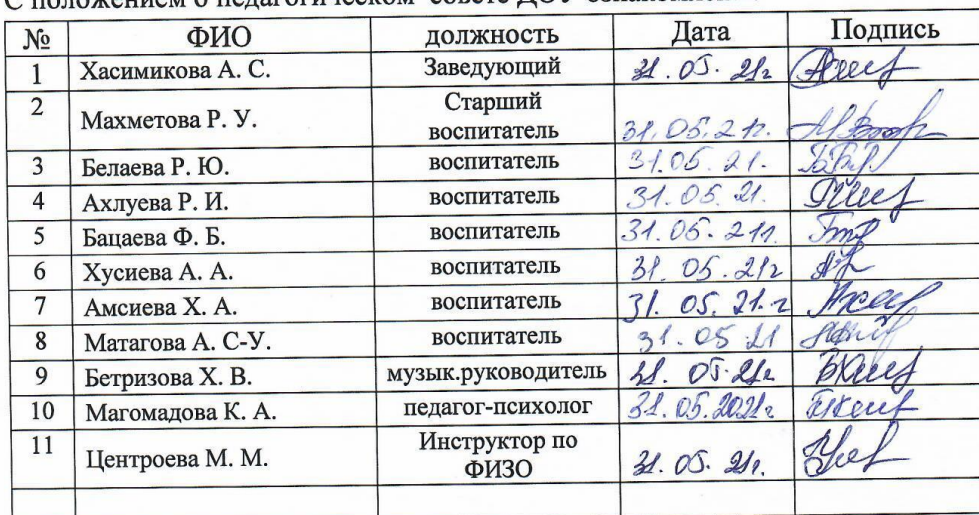 С положением о педагогическом совете ДОУ
№ ФИО должность Дата Подпись
1 Хасимикова А. С. Заведующий 31.05.21г
2 Махметова Р. У. Старший воспитатель 31.05.21г.
3 Белаева Р. Ю. воспитатель 31.05.21.
4 Ахлуева Р. И. воспитатель 31.05.21.
5 Бацаева Ф. Б. воспитатель 31.05.21г.
6 Хусиева А. А. воспитатель 31.05.21г
7 Амсиева Х. А. воспитатель 31.05.21.г
8 Матагова А. С-У. воспитатель 31.05.21
9 Бетризова Х. В. музык.руководитель 31.05.21г
10 Магомадова К. А. педагог-психолог 31.05.2021г
11 Центроева М. М. Инструктор по ФИЗО 31.05.21г.